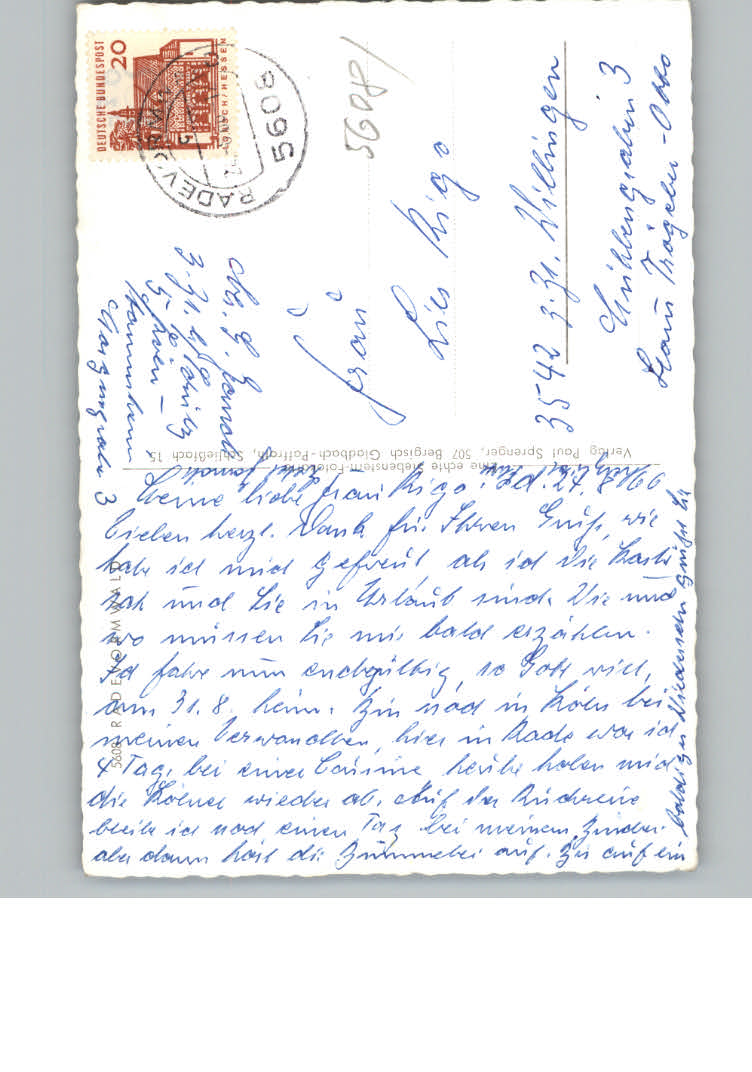 DEUTSCHE BUNDESPOST
20
LORSCH/HESSEN
5608
RADEV
5608/
Frau
Lies Rigo
3542 z. Zt. Willingen
Mühlengraben 3
Haus Trögeler-Otto
Abs. E. Janoth
z. Zt.
5 Köln-
Stammheim
3
Verlag Paul Sprenger, 507 Bergisch Gladbach-Paffrath, Schließfach 15
Eine echte Siebenstein-Fotokarte
5608 RADEVORMWALD
Meine liebe Frau Rigo! d. 27.8.66
Vielen herzl. Dank für Ihren Gruß, wie
habe ich mich gefreut, als ich die Karte
sah und Sie in Urlaub sind. Wie und
wo müssen Sie mir bald erzählen.
Ich fahre nun endgültig, so Gott will,
am 31.8. heim. Bin noch in Köln bei
meinen Verwandten, hier in Rade war ich
4 Tage bei einer Cousine, heute holen mich
die Kölner wieder ab. Auf der Rückreise
bleibe ich noch einen Tag bei meinem Bruder
aber dann hört die Bummelei auf. Bis auf ein
baldiges Wiedersehn grüßt Sie
Ihre E. Janoth